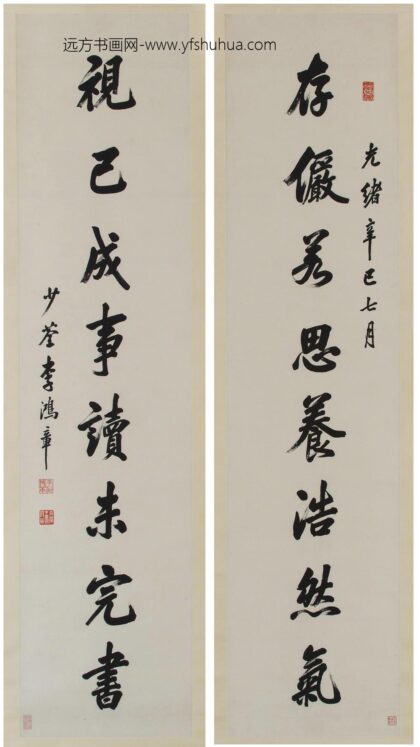 远方书画网-www.yfshuhua.com
光绪辛巳七月
存儼若思養浩然氣
視已成事讀未完書
少荃李鴻章